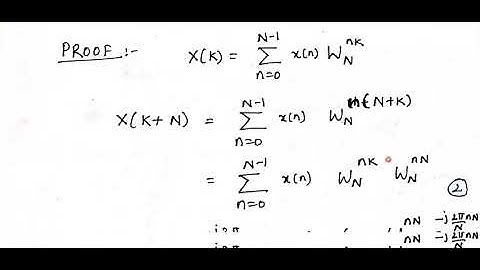 PROOF :- X(K) = N-1 ∑ n=0 x(n) W_N^{nK}
X(K+N) = N-1 ∑ n=0 x(n) W_N^{n(N+K)}
= N-1 ∑ n=0 x(n) W_N^{nK} · W_N^{nN}
2
nN -j 2π/N nN
nN -j 2π/N nN